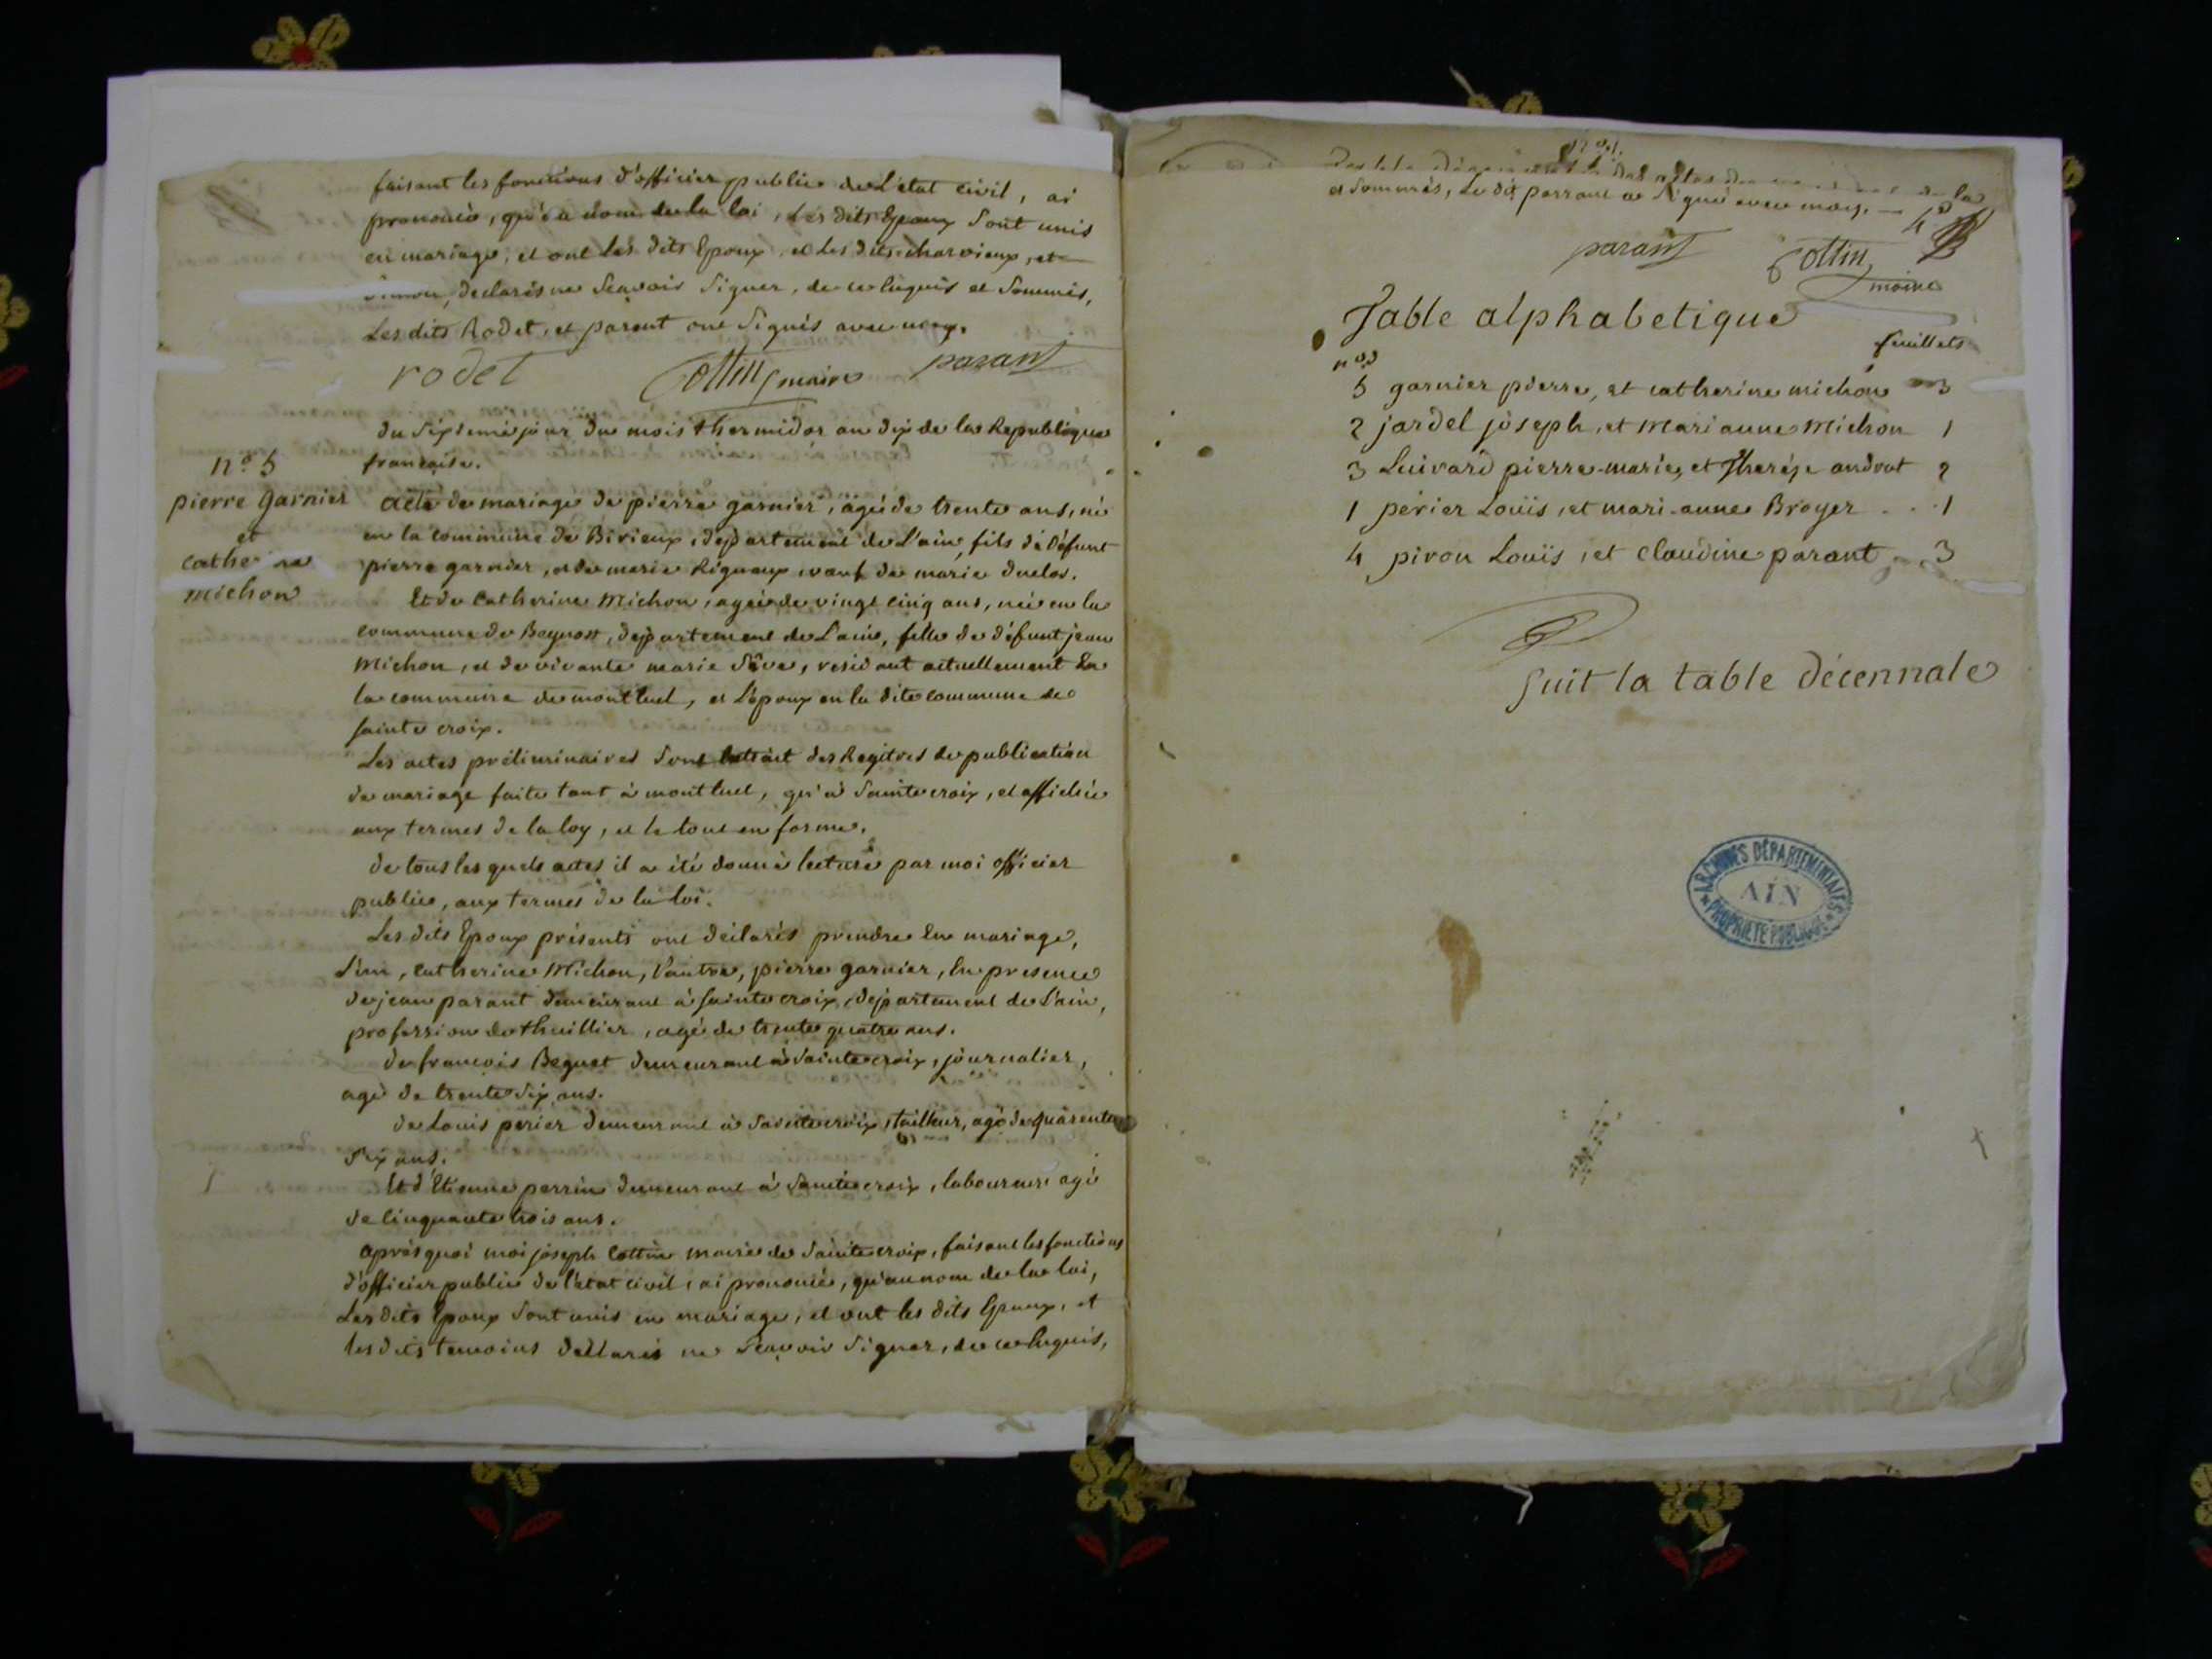 faisant les fonctions d'officier public de L'état civil, ai
prononcé, qu'au nom de la loi, Les dits Epoux sont unis
en mariage, et ont les dits Epoux, et les dits charvieux, et
declarés ne sçavoir signer, de ce enquis et sommés,
Les dits Rodet, et parent ont signés avec moy.
rodet Cottin maire parant
du sixieme jour du mois thermidor an dix de la Republique
francaise.
n.º 5
pierre garnier
et
catherine
michon
acte de mariage de pierre garnier, agé de trente ans, né
en la commune de Birieux, departement de L'ain, fils de défunt
pierre garnier, et de marie Rigneux, veuf de marie duclos.
Et de Catherine Michon, agée de vingt cinq ans, née en la
commune de Beynost, departement de L'ain, fille de défunt jean
Michon, et de vivante marie Séve, residant actuellement En
la commune de montluel, et L'époux en la dite commune de
sainte croix.
Les actes préliminaires sont Extrait des Regitres de publication
de mariage faite tant à montluel, qu'à Sainte croix, et affichée
aux termes de la loy, et le tout en forme.
de tous les quels actes il a été donné lecture par moi officier
public, aux termes de la loi.
Les dits Epoux présents ont déclarés prendre En mariage,
L'un, Catherine Michon, L'autre, pierre garnier, En presence
de jean parant demeurant à sainte croix, departement de L'ain,
profession de thuillier, agé de trente quatre ans.
de francois Beguet demeurant à Sainte croix, journalier,
agé de trente six ans.
de Louis perier demeurant à Sainte croix, tailleur, agé de quarente
six ans.
Et d'Etienne perrin demeurant à Sainte croix, laboureur, agé
de cinquante trois ans.
après quoi moi joseph Cottin maire de Sainte croix, faisant les fonctions
d'officier public de l'état civil, ai prononcé, qu'au nom de la loi,
Les dits Epoux sont unis en mariage, et ont les dits Epoux, et
les dits temoins déclarés ne sçavoir signer, de ce enquis,
et sommés, Le dit parrant a signé avec moy.
parant Cottin
maire
Table alphabetique
n.os feuillets
5 garnier pierre, et catherine michon 3
2 jardel joseph, et Marianne Michon 1
3 Luivard pierre-marie, et Therése androt 2
1 périer Louis, et mari-anne Broyer . . . 1
4 piron Louïs, et Claudine parant 3
Suit la table décennale
ARCHIVES DÉPARTEMENTALES
AIN
PROPRIÉTÉ PUBLIQUE